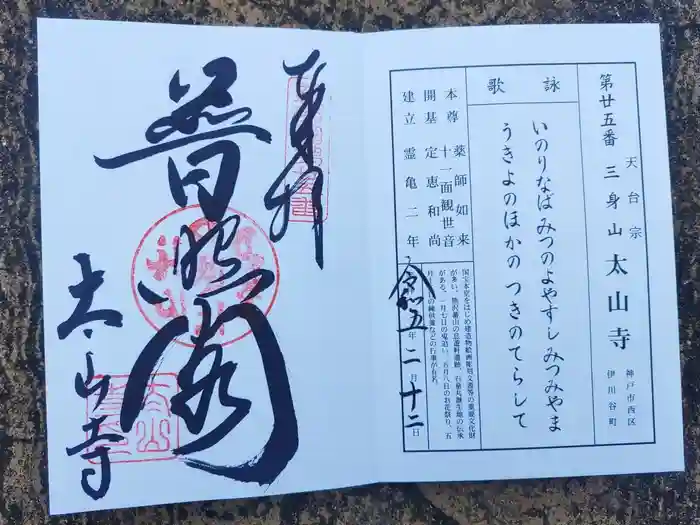 第廿五番 天台宗 三身山 太山寺 神戸市西区
伊川谷町
詠歌
いのりなば みつのよやすし みつみやま
うきよのほかの つきのてらして
本尊 薬師如来
十一面観世音
開基 定恵和尚
建立 霊亀二年
国宝本堂をはじめ建造物絵画彫刻文書等の重要文化財
が多い。
がある。一月七日の鬼追い、五月八日のお花祭り、五
令和五年 二月 十二日
奉拝
普照閣
太山寺